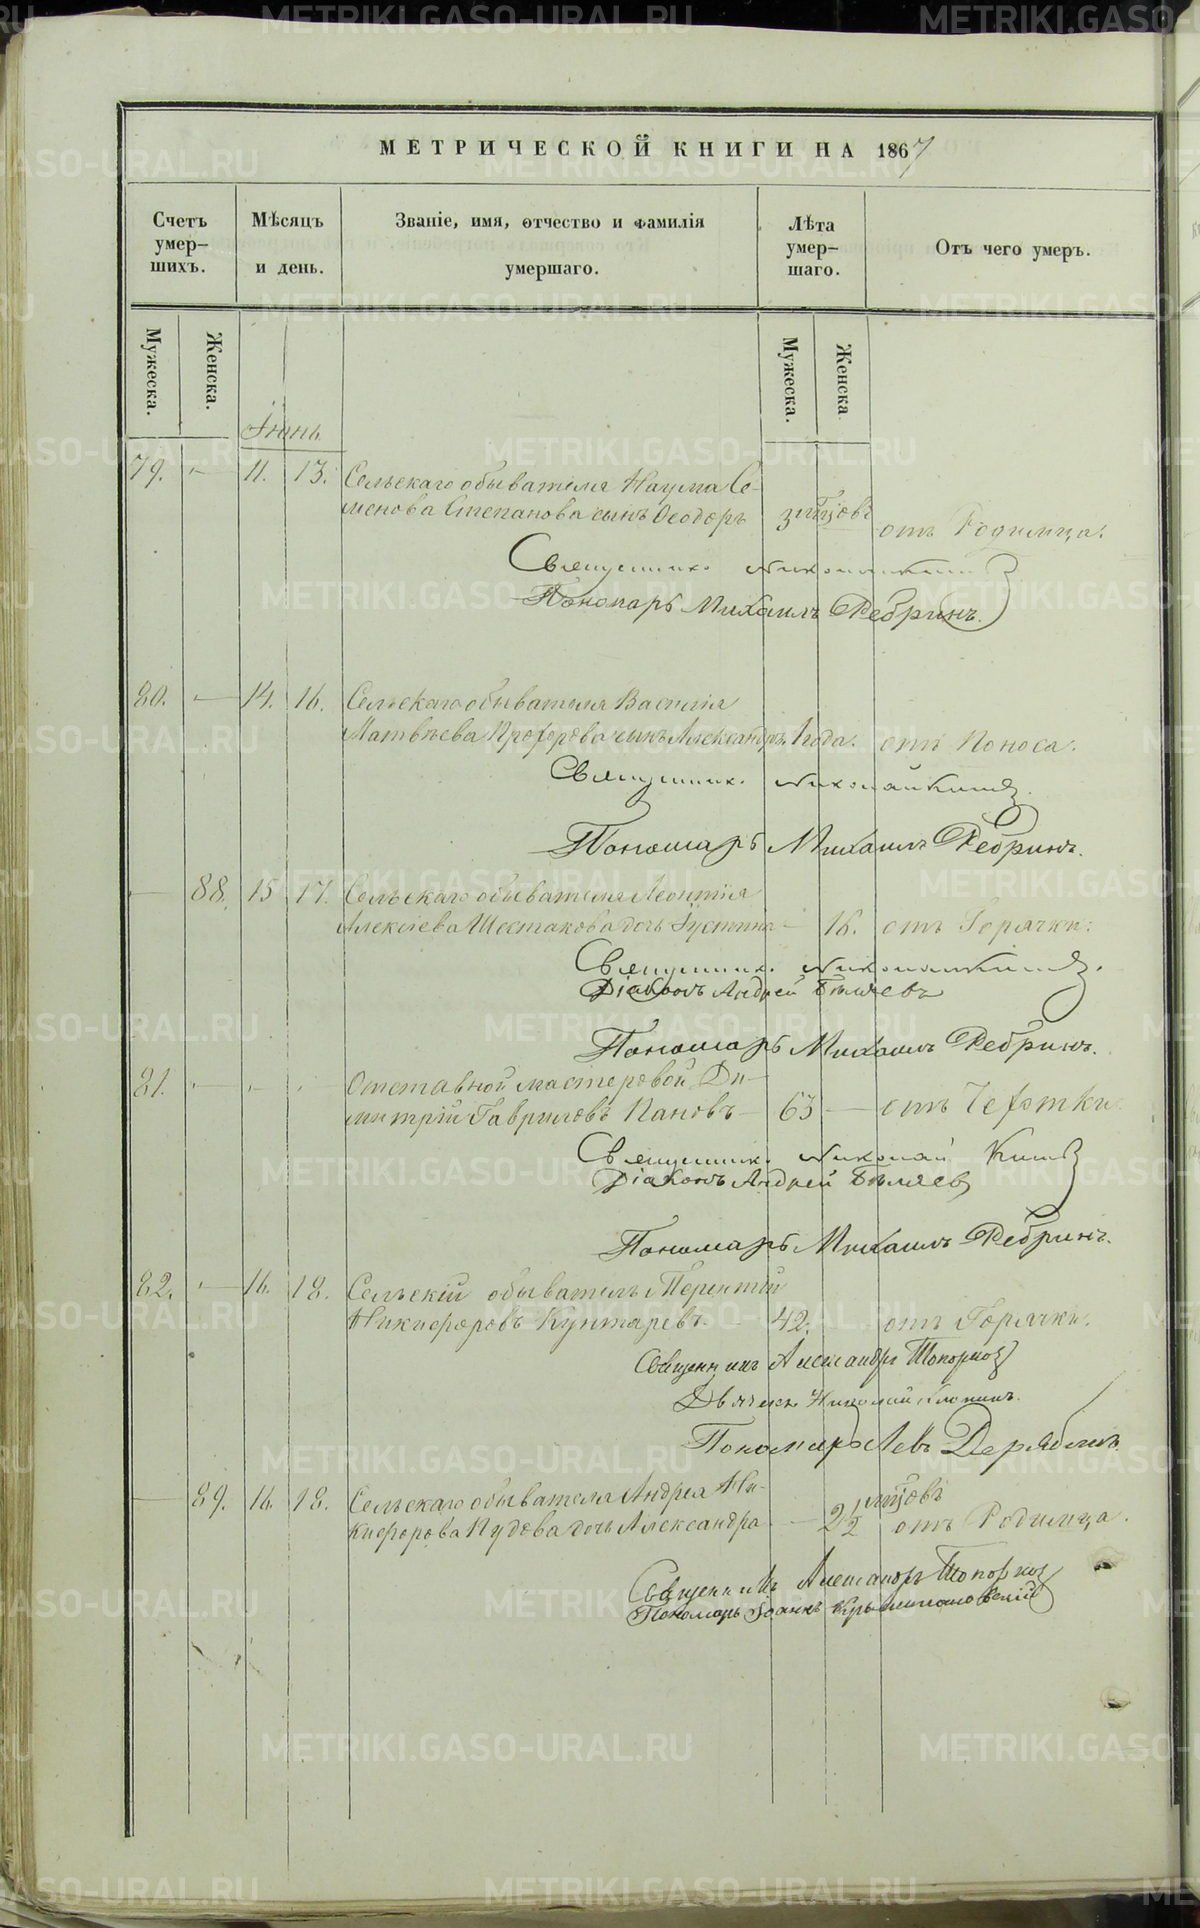 МЕТРИЧЕСКОЙ КНИГИ НА 1867
Счетъ умер-шихъ.
Мѣсяцъ и день.
Званіе, имя, отчество и фамилія умершаго.
Лѣта умер-шаго.
Отъ чего умеръ.
Мужеска.
Женска.
Мужеска.
Женска
Іюнь
79. — 11. 13. Сельскаго обывателя Наума Се-
менова Степанова сынъ Ѳеодоръ 3 мцовъ отъ Родимца.
Священникъ Николай
Пономарь Михаилъ Ребринъ.
80. — 14. 16. Сельскаго обывателя Василія
Матвѣева Прохорова сынъ Александръ 1 года. отъ Поноса.
Священникъ Николай
Пономарь Михаилъ Ребринъ.
— 88. 15 17. Сельскаго обывателя Леонтія
Алексіева Шестакова дочь Іустина — 16. отъ Горячки.
Священникъ Николай
Діаконъ Андрей Бѣляевъ
Пономарь Михаилъ Ребринъ.
81. — — — Отставной мастеровой Ди-
митрій Гавриловъ Пановъ — 63 — отъ Чехотки.
Священникъ Николай
Діаконъ Андрей Бѣляевъ
Пономарь Михаилъ Ребринъ.
82. — 16. 18. Сельскій обыватель Терентій
Никифоровъ Кунгаревъ. 42. отъ Горячки.
Священникъ Александръ Топорковъ
Дьячекъ Николай
Пономарь Левъ Дерябинъ
— 89. 16. 18. Сельскаго обывателя Андрея Ни-
кифорова Пудова дочь Александра — 2½ мцовъ отъ Родимца.
Священникъ Александръ Топорковъ
Пономарь Іоаннъ